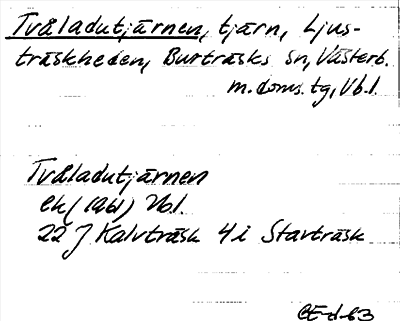 Tvåladutjärnen, tjärn, Ljus-
träskheden, Burträsks sn, Västerb.
m. doms. tg, Vb.l.
Tvåladutjärnen
ek (1961) Vb l.
22 J Kalvträsk 4 i Stavträsk